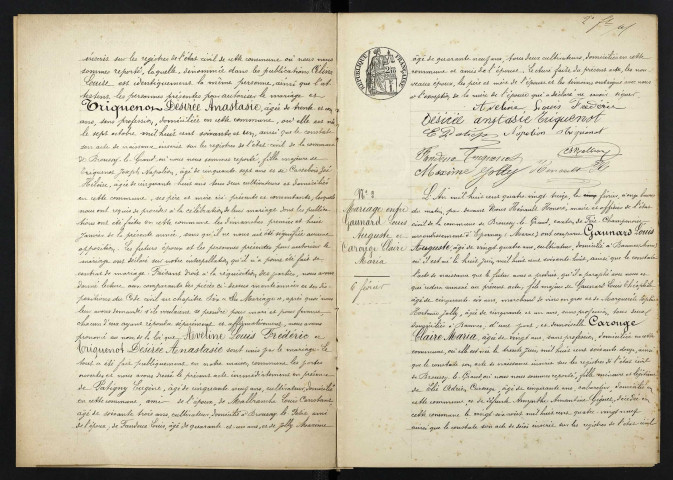 inscrite sur les registres de l'état civil de cette commune où nous nous
sommes reporté, laquelle, dénommée dans les publications
Louise est identiquement la même personne, ainsi que l'at-
testent les personnes présentes pour autoriser le mariage et
Triquenot Désirée Anastasie, âgée de trente et
ans, sans profession, domiciliée en cette commune, où elle est née
le sept octobre mil huit cent soixante et un, ainsi que le constate
son acte de naissance inscrit sur les registres de l'état civil de la commune
de Broussy-le-Grand, où nous nous sommes reporté, fille majeure de
Triquenot Joseph Napoléon, âgé de cinquante sept ans et de
âgée de cinquante huit ans tous deux cultivateurs et domiciliés
en cette commune, ses père et mère ici présents et consentants, lesquels
nous ont requis de procéder à la célébration de leur mariage dont les publica-
tions ont été faites en cette commune les dimanches premier et huit
Janvier de la présente année, sans qu'il ne nous ait été signifié aucune
opposition. Les futurs époux et les personnes présentes pour autoriser le
mariage ont déclaré sur notre interpellation, qu'il n'a point été fait de
contrat de mariage. Faisant droit à la réquisition des parties, nous avons
donné lecture aux comparants des pièces ci-dessus mentionnées et des dis-
positions du Code civil au chapitre Six du Mariage, après quoi nous
leur avons demandé s'ils veulent se prendre pour mari et pour femme,
chacun d'eux ayant répondu séparément et affirmativement, nous avons
prononcé au nom de la loi que Aveline Louis Frédéric et
Triquenot Désirée Anastasie sont unis par le mariage. Le
tout a été fait publiquement en notre maison commune les portes
ouvertes, et nous avons dressé le présent acte immédiatement en présence
de Patigny Eugène, âgé de cinquante ans, cultivateur, domicilié
en cette commune, ami de l'époux, de Malbranche Louis
âgé de soixante trois ans, cultivateur, domicilié à Broussy le Petit, ami
de l'époux, de Louis, âgé de quarante et un ans, et de Jolly Maxime
RÉPUBLIQUE FRANÇAISE
âgé de quarante ans, tous deux cultivateurs, domiciliés en cette
commune et amis de l'épouse. Lecture faite du présent acte, les nou-
veaux époux, les père et mère de l'épouse et les témoins ont signé avec nous
à l'exception de la mère de l'épouse qui a déclaré ne savoir signer
Aveline Louis Frédéric
Désirée anstasie Triquenot
Napoléon Triquenot
Maxime Jolly
N° 2
Mariage entre
Gaunard Louis
Auguste et
Caronge Claire
Maria
6 février
L'An mil huit cent quatre vingt treize, le six février, à heures
du matin, par devant Nous Honoré, maire et officier de l'état
civil de la commune de Broussy-le-Grand, canton de Fère-Champenoise,
arrondissement d'Epernay (Marne) ont comparu Gaunard Louis
Auguste, âgé de vingt quatre ans, cultivateur, domicilié à
où il est né le huit Juin mil huit cent soixante huit, ainsi que le constate
l'acte de naissance que le futur nous a produit, qu'il a paraphé avec nous et
qui restera annexé au présent acte, fils majeur de Gaunard Louis Théophile
âgé de cinquante six ans, marchand de vins en gros et de Marguerite Sophie
âgée de cinquante et un ans, sans profession, tous deux
domiciliés à d'une part, et demoiselle Caronge
Claire Maria, âgée de vingt ans, sans profession, domiciliée en cette
commune, où elle est née le trente Juin mil huit cent soixante douze, ainsi
que le constate son acte de naissance inscrit sur les registres de l'état civil
de Broussy-le-Grand où nous nous sommes reporté, fille mineure et légitime
de Elie Caronge, âgé de cinquante ans, domicilié en
cette commune, et de défunte Amantine Eugénie, décédée en
cette commune le vingt six août mil huit cent quatre vingt neuf
ainsi que le constate son acte de décès inscrit sur les registres de l'état civil